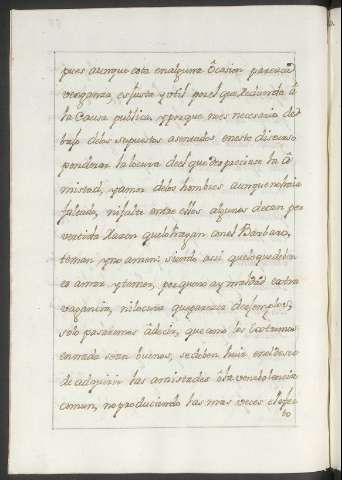 pues aunque esta en alguna ôcasion parezca
verganza, es justa y vtil por el que redunda â
la Causa publica, y porque no es necesaria de
bajo delos supuestos asentados en este discurso
ponderar la locura del que desprecia se la â
mistad, y amor delos hombres aunque no haia
faltado, ni falte entre ellos algunos de tan per
vertida razon que lo hagan con el Barbaro,
teman y no amen: siendo assi que los que debie
to amar y temer, porque no ay maldad extra
vagancia, ni locura que parezca de exemplos,
solo pasaremos â decir, que como los costumes
en nada sean buenos, se deben huir en el deseo
de adquirir las amistades ô la venebolencia
comun, no produciendo las mas veces el efec
to